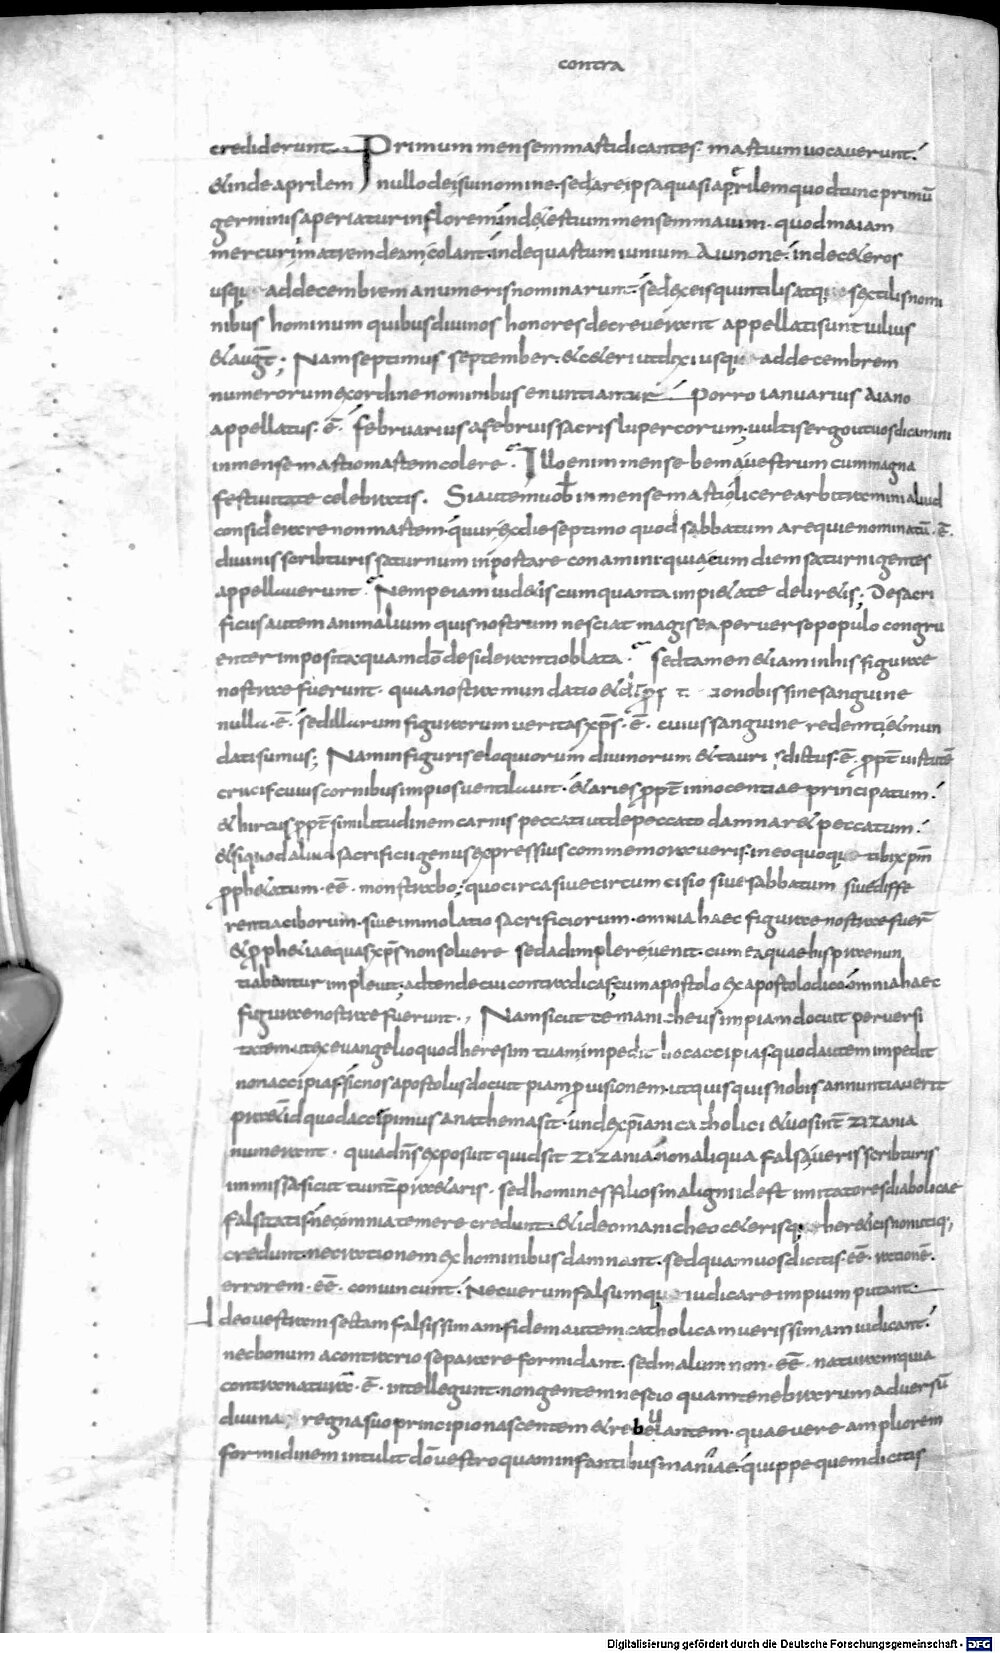 contra
crediderunt Primum mensem marti dicantes martium vocaverunt.
et inde aprilem nullo dei sui nomine. sed a re ipsa quasi aperilem quod tunc primū
germinis aperiatur in florem inde tertium mensem maium. quod maiam
mercurii matrem deam colant. inde quartum iunium A iunone. inde ceteros
usq: ad decembrem a numeris nominarunt. sed ex eis quintilis atq: sextilis nomi
nibus hominum quibus divinos honores decreverunt appellati sunt iulius
et augt; Nam septimus september. et ceteri ut dixi usq: ad decembrem
numerorum ex ordine nominibus enuntiantur Porro ianuarius A iano
appellatus. ē. februarius a februis sacris lupercorum, vultis ergo ut vos dicamini
in mense martio martem colere. Illo enim mense bema vestrum cum magna
festivitate celebratis. Si autem vob in mense martio licere arbitramini aliud
considerare non martem. quur ex die septimo quod sabbatum a requie nominatū. ē.
divinis scribturis saturnum inportare conamini. quia eum diem saturni gentes
appellaverunt. Nempe iam videtis cum quanta impietate deliretis; De sacri
ficiis autem animalium quis nostrum nesciat magis ea perverso populo congru
enter imposita quam dō desideranti oblata. sed tamen etiam in his figurae
nostrae fuerunt. quia nostra mundatio et nobis sine sanguine
nulla. ē. sed illarum figurarum veritas xp̄s. ē. cuius sanguine redemti et mun
dati sumus; Nam in figuris eloquiorum divinorum et taurus dictus. ē. propt virtutē
crucis cuius cornibus impios ventilavit. et aries propt innocentiae principatum.
et hircus propt similitudinem carnis peccati ut de peccato damnaret peccatum.
et si quod aliud sacrificii genus expressius commemoraveris. in eo quoq: tibi xpm
pphetatum. eē. monstrabo; quocirca sive circumcisio sive sabbatum sive diffe
rentia ciborum. sive immolatio sacrificiorum. omnia haec figurae nostrae fuer
et pphetiae quas xp̄s non solvere sed adimplere venit. cum ea quae his praenun
tiabantur implevit. adtende cui contradicas; cum apostolo ex apostolo dico. omnia haec
figurae nostrae fuerunt., Nam sicut te manicheus impiam docuit perversi
tatem. ut ex evangelio quod heresim tuam impedit hoc accipias. quod autem impedit
non accipias. sic nos apostolus docuit piam provisionem. ut quisquis nobis annuntiaverit
praeter id quod accipimus anathema sit. unde xpiani catholici et vos int zizania
numerant. quia dn̄s exposuit quid sit zizania. non aliqua falsa veris scribturis
immissa. sicut tu interpraetaris. sed homines filios maligni id est imitatores diabolicae
falsitatis. nec omnia temere credunt. et ideo manicheo ceterisq; hereticis non utiq,
credunt. nec rationem ex hominibus damnant. sed quam vos dicitis. eē. rationē.
errorem. eē. convincunt. Nec verum falsumq: iudicare impium putant.
Ideo vestram sectam falsissimam. fidem autem catholicam verissimam iudicant.
nec bonum a contrario separare formidant. sed malum non. eē. naturam. quia
contra naturā. ē. intellegunt. non gentem nescio quam tenebrarum adversū
divina; regna suo principio nascentem et rebellantem. quae vere ampliorem
formidinem intulit dō vestro quam infantibus maniae. quippe quem dicitis
Digitalisierung gefördert durch die Deutsche Forschungsgemeinschaft - DFG